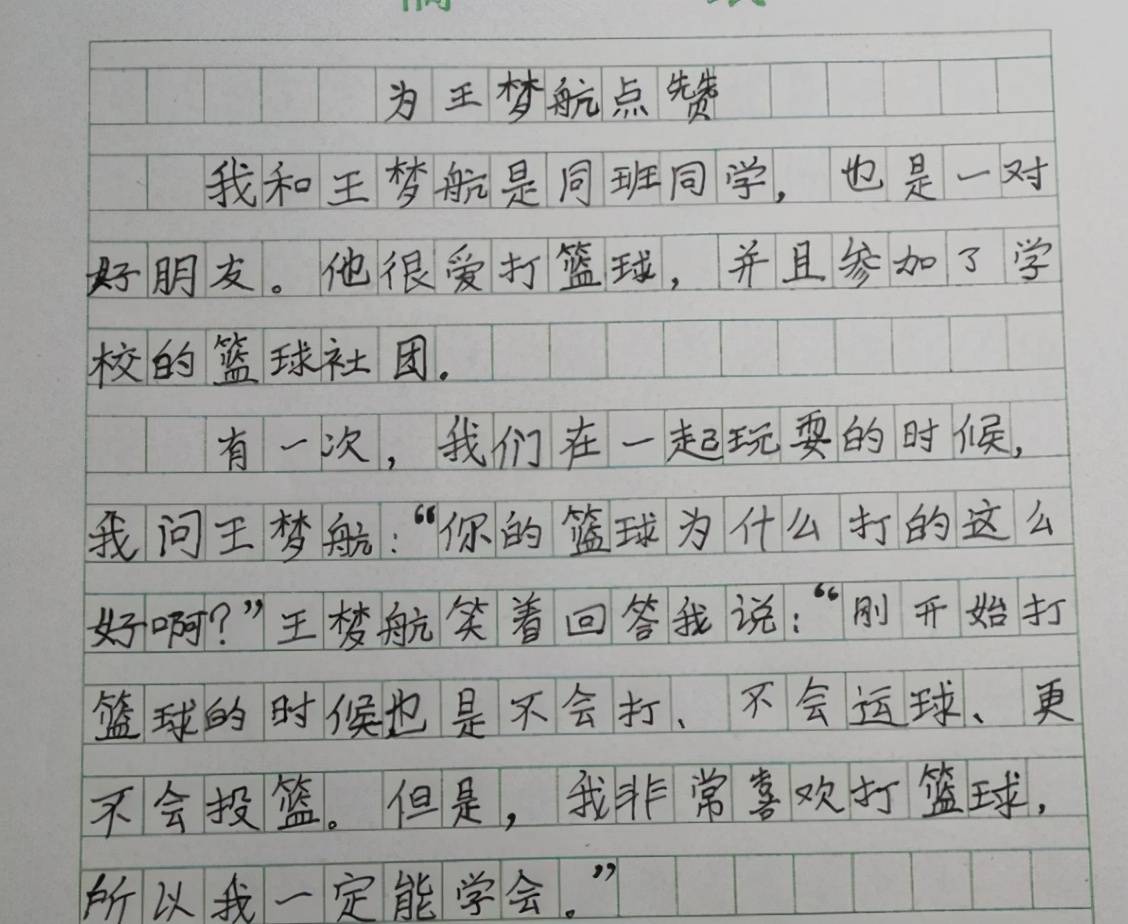 为王梦航点赞
我和王梦航是同班同学，也是一对
好朋友。他很爱打篮球，并且参加了学
校的篮球社团.
有一次，我们在一起玩耍的时候，
我问王梦航：“你的篮球为什么打的这么
好啊？”王梦航笑着回答我说：“刚开始打
篮球的时候也是不会打、不会运球、更
不会投篮。但是，我非常喜欢打篮球，
所以我一定能学会.”